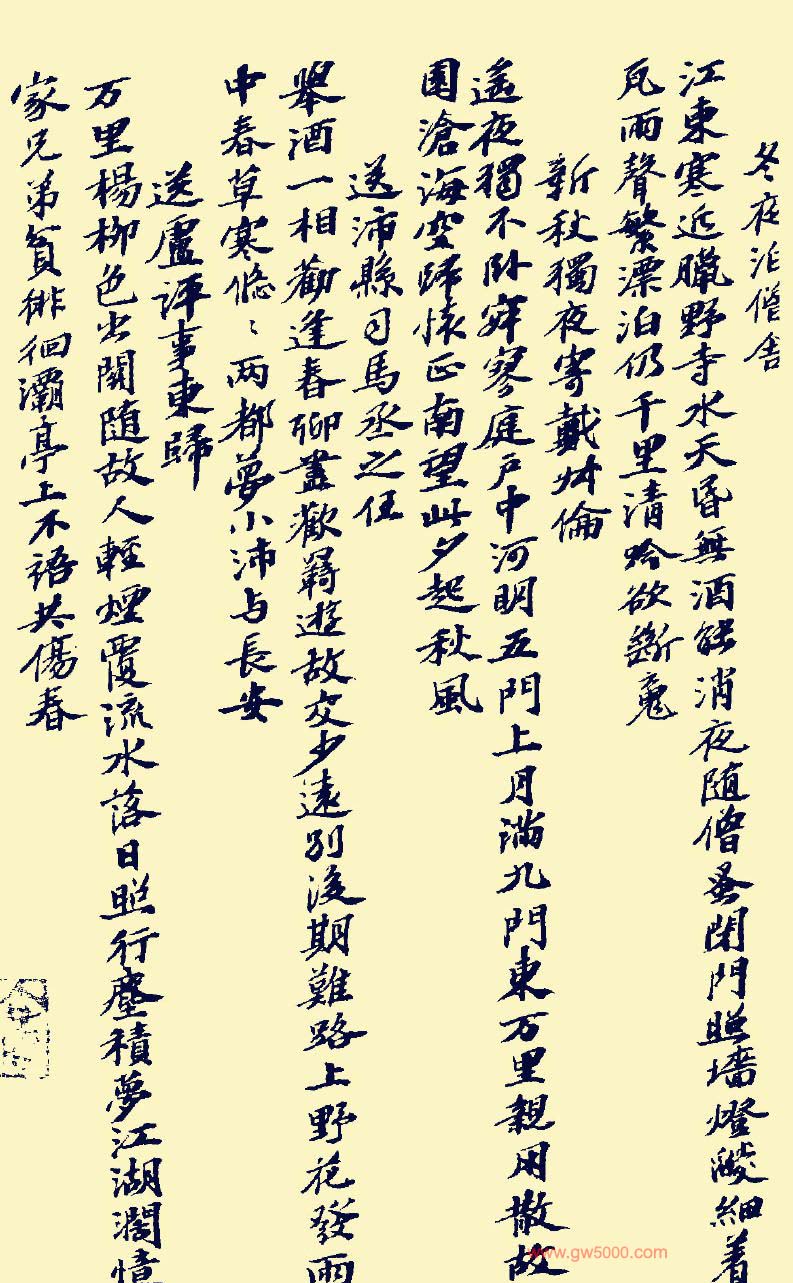 冬夜泊僧舍
江東寒近臘野寺水天昏無酒能消夜随僧蚤閉門照墻燈燄細着
瓦雨聲繁漂泊仍千里清吟欲斷魂
新秋獨夜寄戴叔倫
遥夜獨不卧寂寥庭户中河明五門上月滿九門東万里親朋散故
園滄海空歸懷正南望此夕起秋風
送沛縣司馬丞之任
舉酒一相勸逢春聊盡歡羇遊故交少遠别後期難路上野花發雨
中春草寒悠〻兩都夢小沛与長安
送盧評事東歸
万里楊柳色出關随故人輕煙覆流水落日照行塵積夢江湖濶憶
家兄弟貧徘徊灞亭上不語共傷春
www.gw5000.com